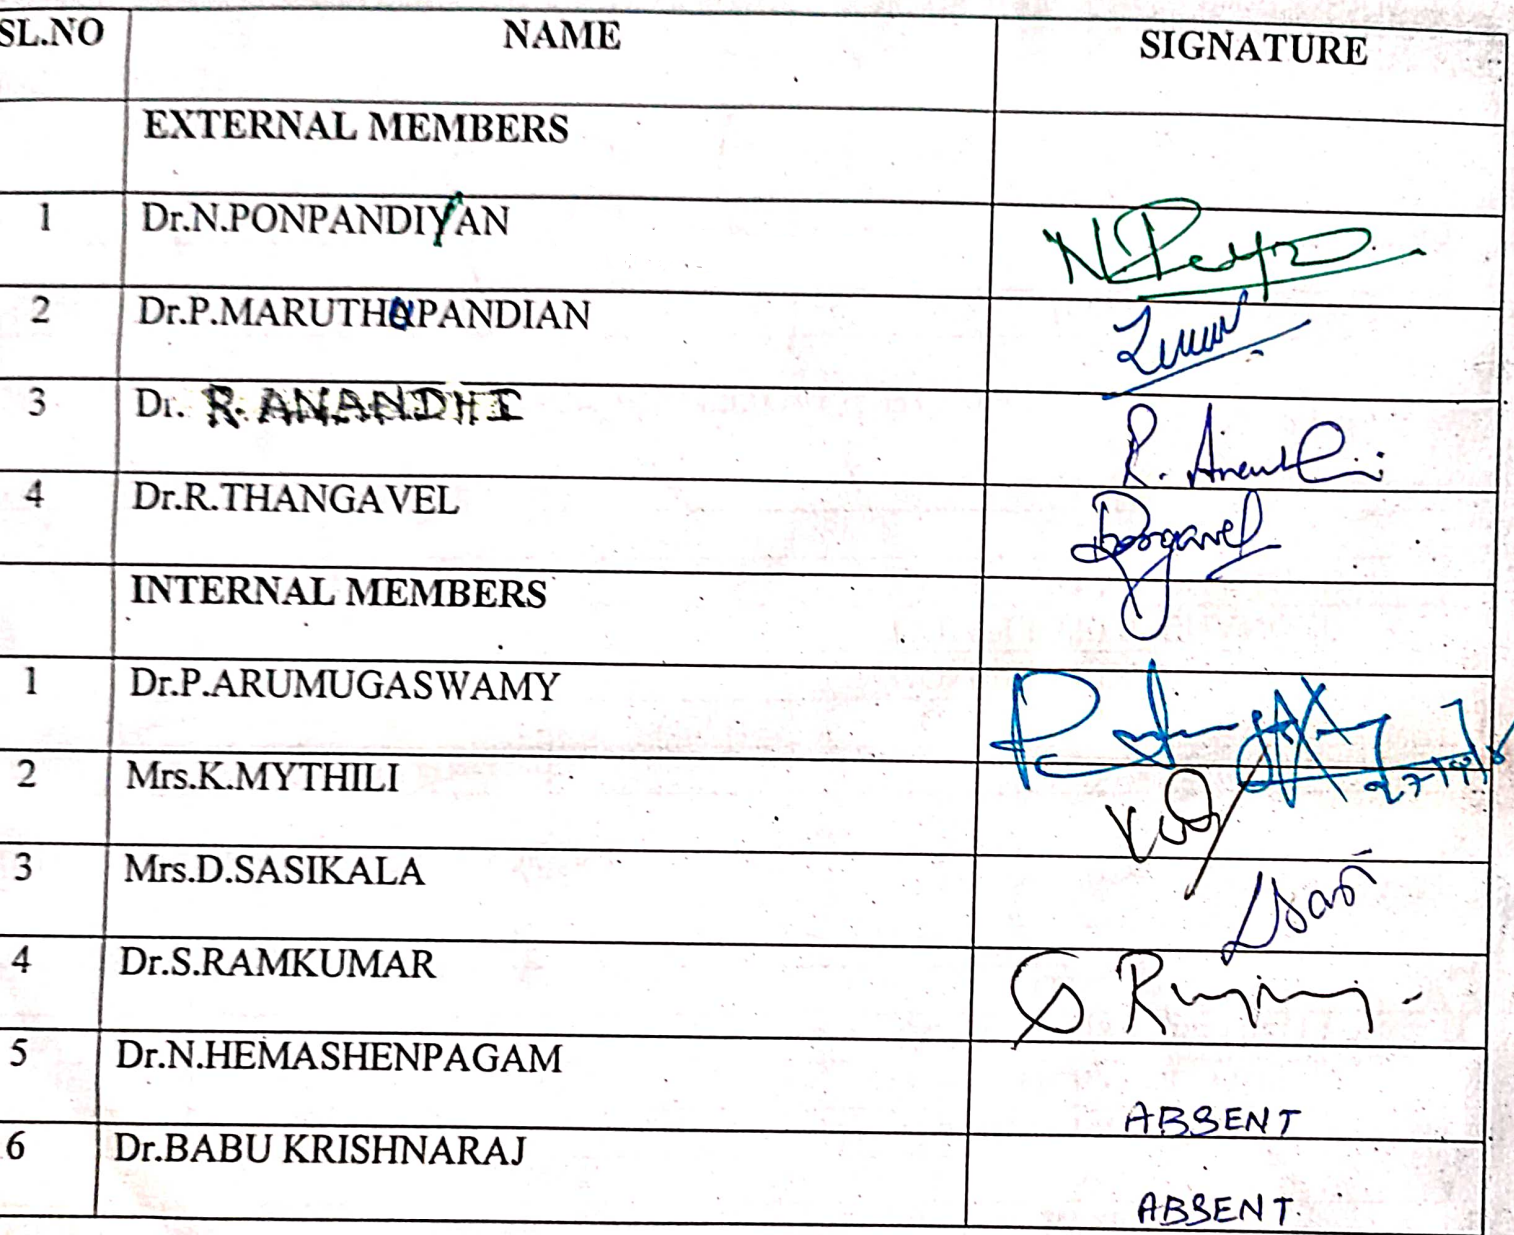 SL.NO NAME SIGNATURE
EXTERNAL MEMBERS
1 Dr.N.PONPANDIYAN
2 Dr.P.MARUTHAPANDIAN
3 Dr. R. ANANDHI R. Anandhi
4 Dr.R.THANGAVEL
INTERNAL MEMBERS
1 Dr.P.ARUMUGASWAMY
2 Mrs.K.MYTHILI
3 Mrs.D.SASIKALA
4 Dr.S.RAMKUMAR
5 Dr.N.HEMASHENPAGAM ABSENT
6 Dr.BABU KRISHNARAJ ABSENT.